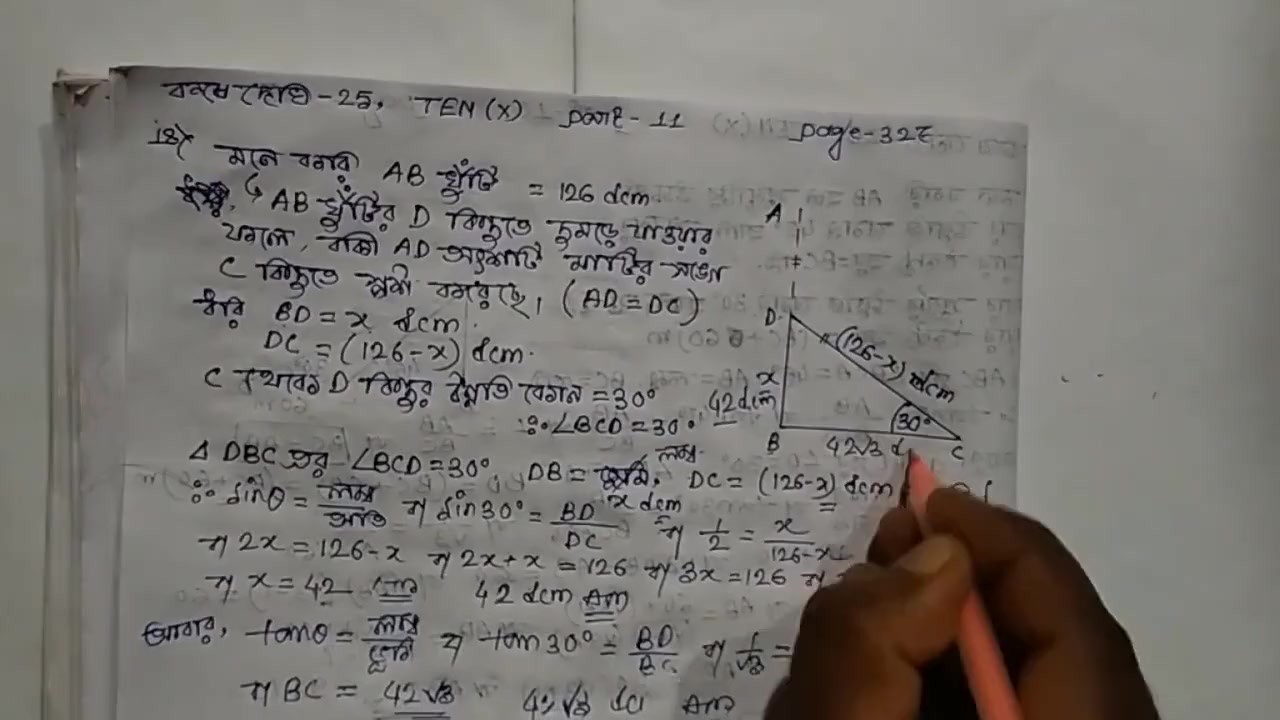 কষে দেখি - 25, TEN (X) Part - 11 page - 327
18) মনে করি AB খুঁটি = 126 dcm
AB খুঁটির D বিন্দুতে দুমড়ে যাওয়ার
ফলে, বাকী AD অংশটি মাটির সঙ্গে
C বিন্দুতে স্পর্শ করেছে। (AD = DC)
ধরি BD = x dcm.
DC = (126-x) dcm.
C থেকে D বিন্দুর উন্নতি কোণ = 30°
∴ ∠BCD = 30°
Δ DBC এর ∠BCD = 30°, DB = লম্ব x dcm DC = (126-x) dcm
∴ sinθ = লম্ব/অতি ⇒ sin30° = BD/DC ⇒ 1/2 = x/126-x
⇒ 2x = 126-x ⇒ 2x+x = 126 ⇒ 3x = 126 ⇒
⇒ x = 42 Ans 42 dcm Ans
আবার, tanθ = লম্ব/ভূমি ⇒ tan30° = BD/BC ⇒ 1/√3 =
⇒ BC = 42√3 42√3 Ans
A
D
(126-x) dcm
x
42 dcm
30°
B 42√3 d C